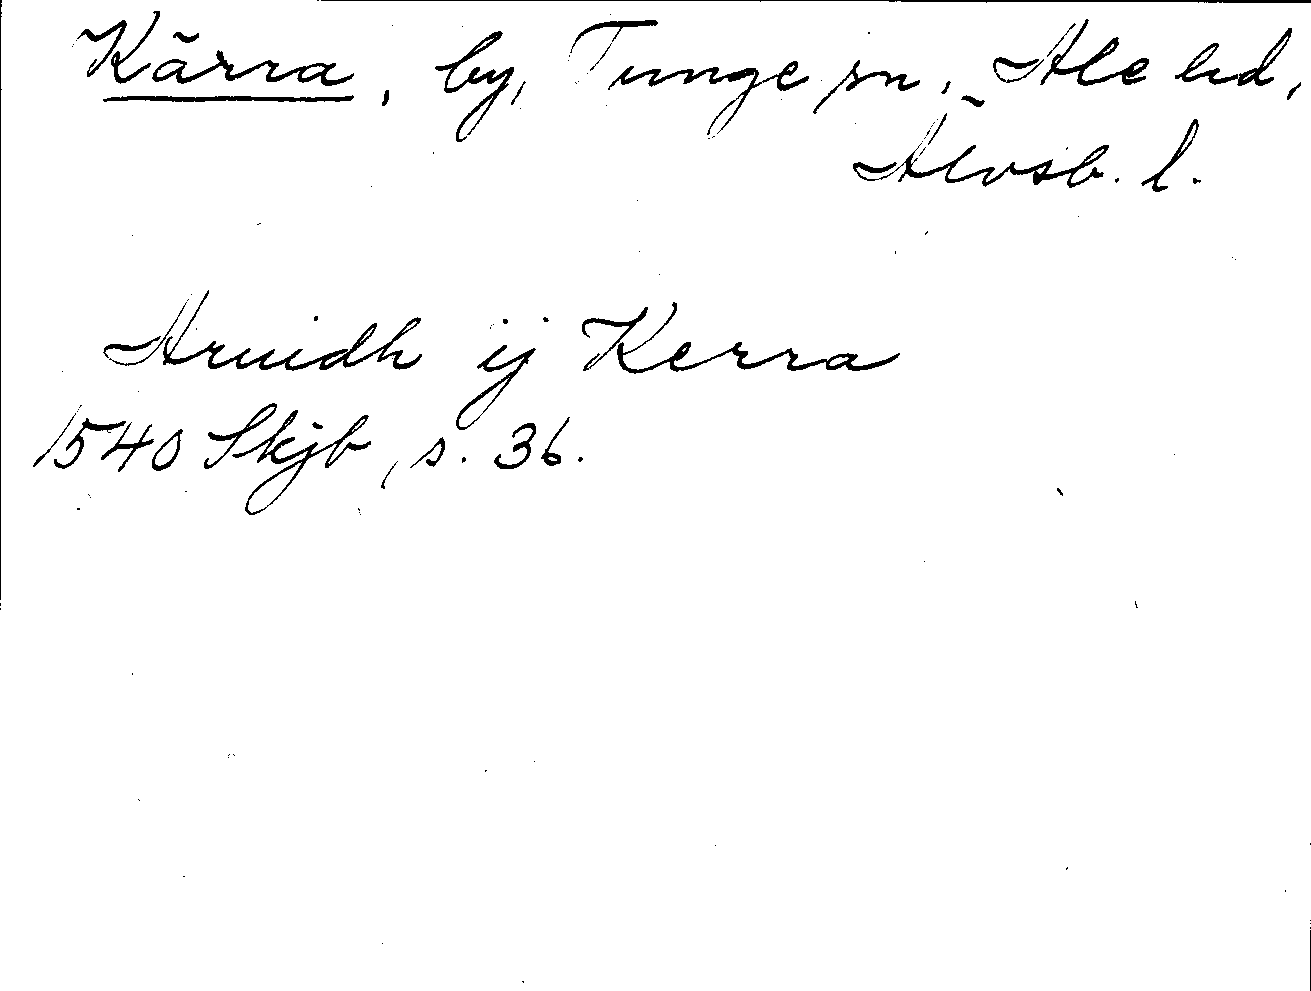 Kärra, by, Tunge sn, Ale hd,
Älvsb. l.
Aruidh ij Kerra
1540 Skjb, s. 36.